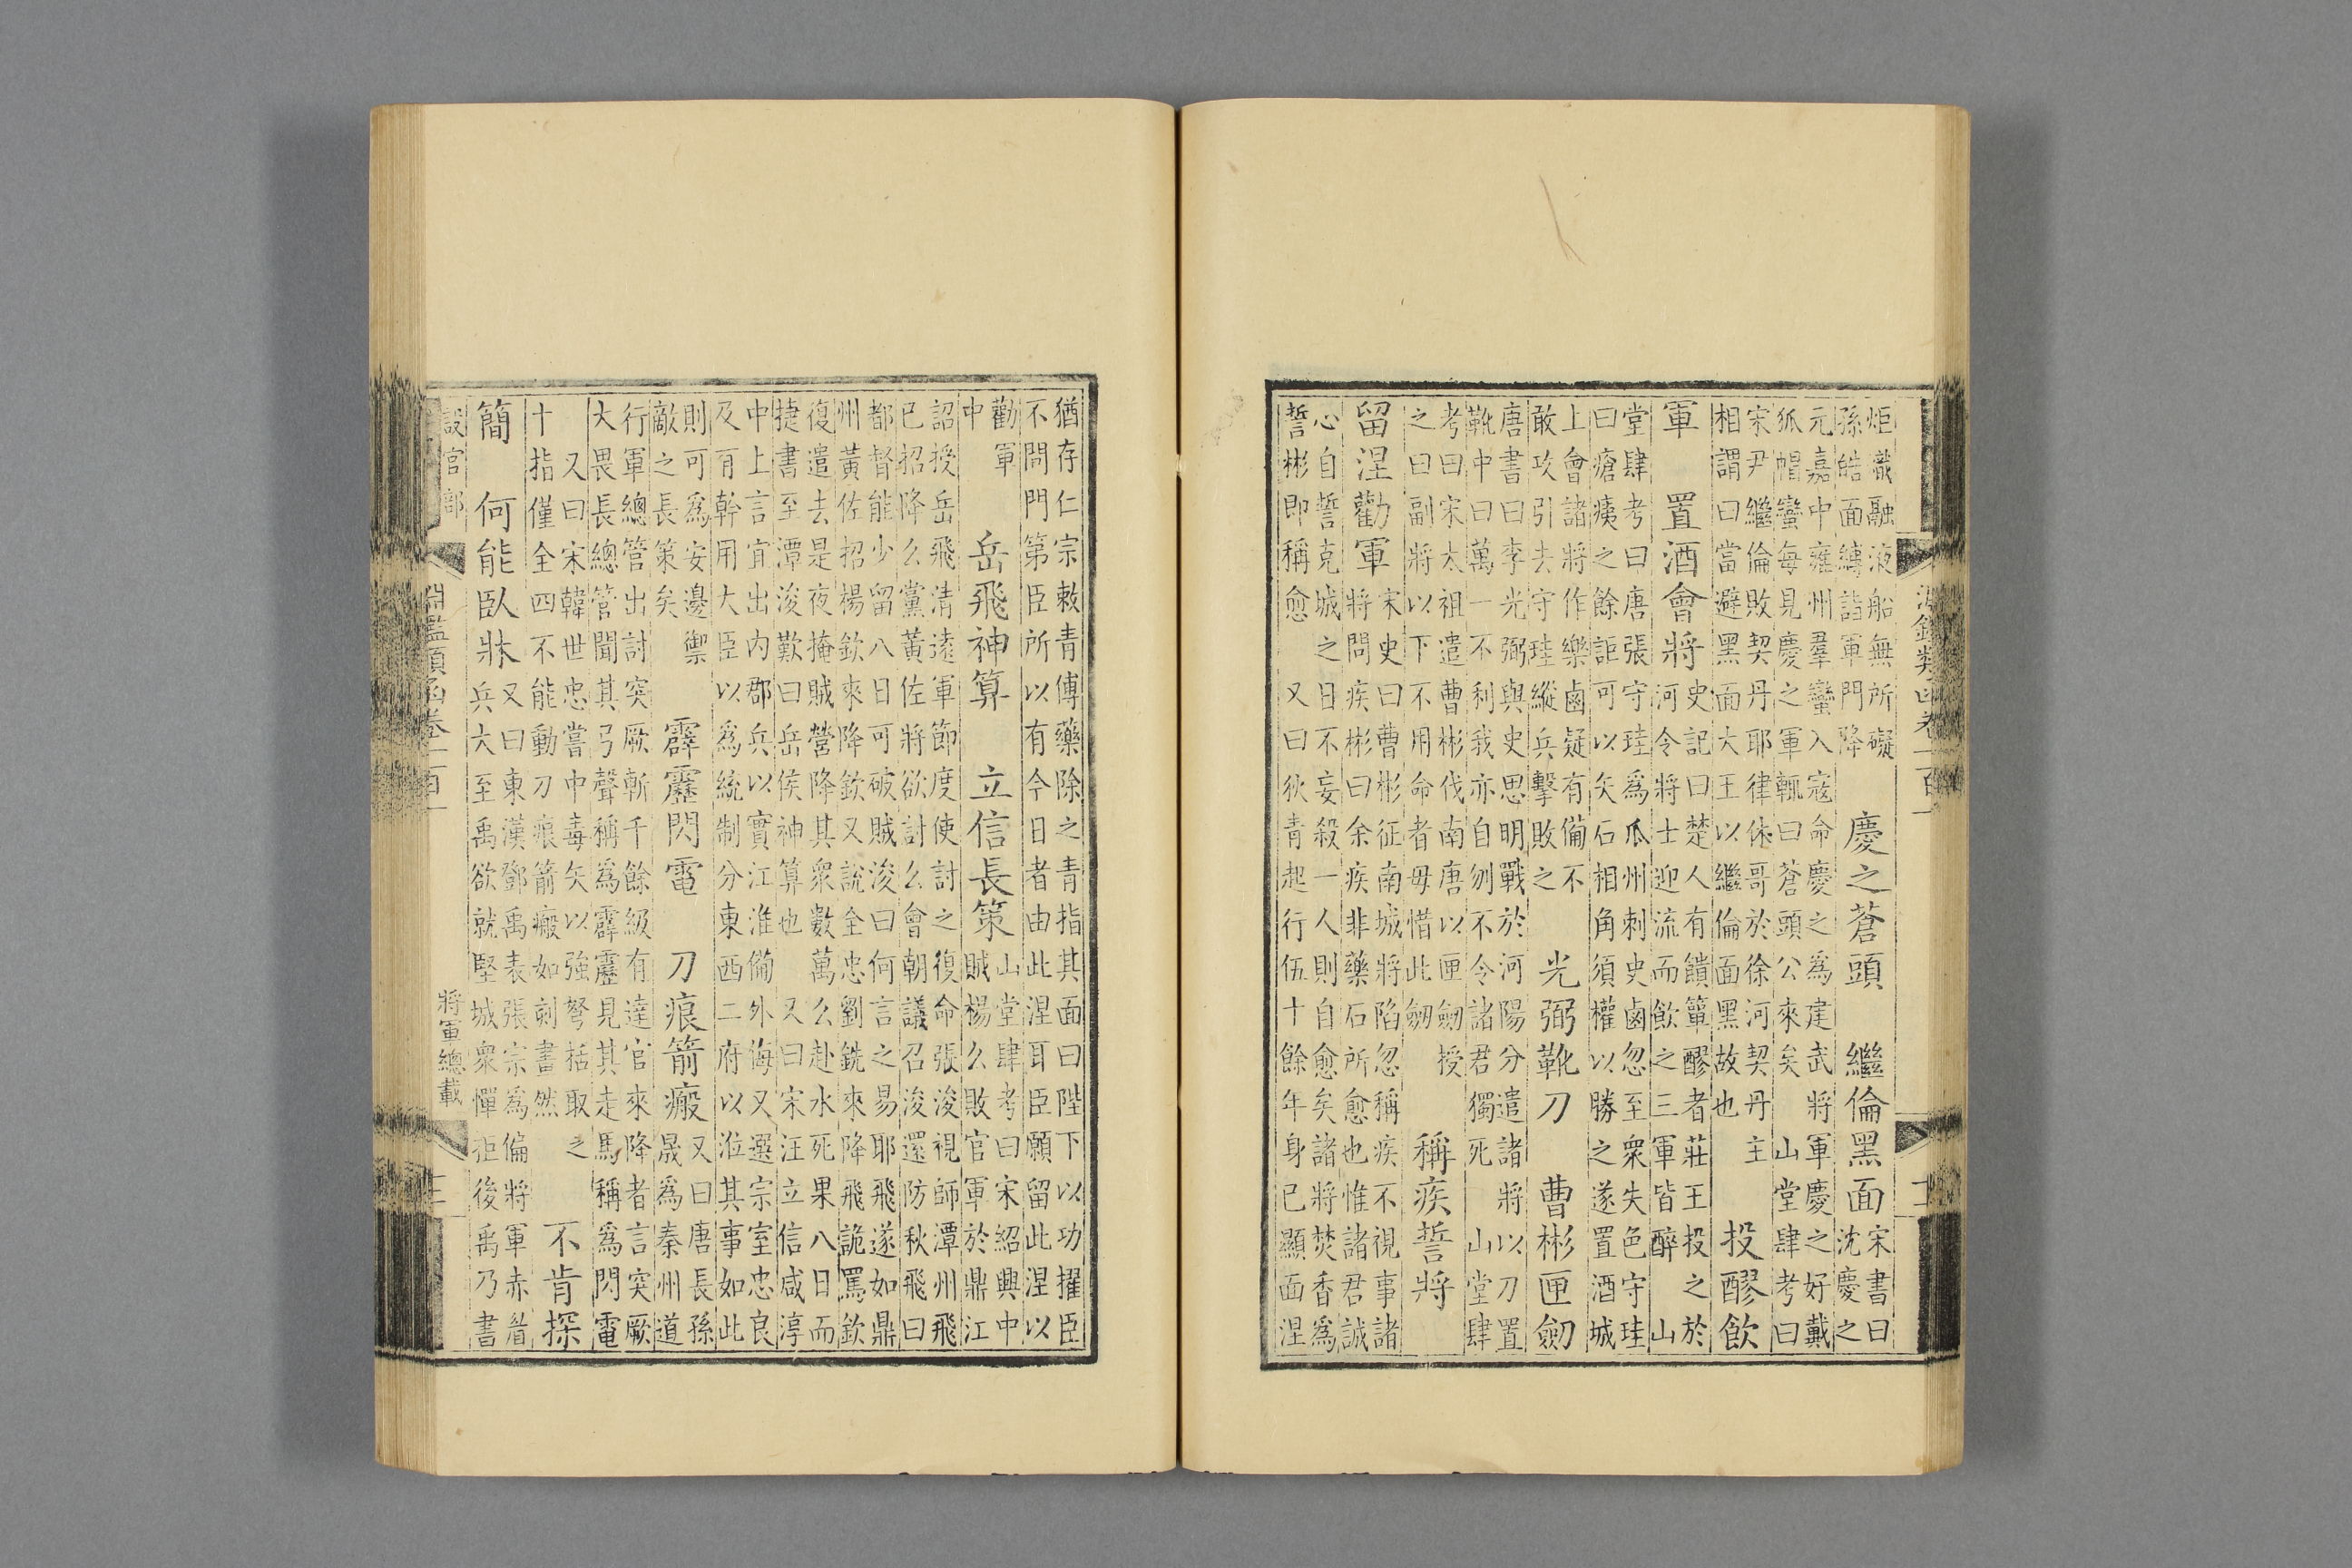 炬燬融液船無所礙
孫皓面縛詣軍門降
慶之蒼頭 繼倫黑面
宋書曰
沈慶之
元嘉中雍州羣蠻入寇命慶之為建武將軍慶之好戴
狐帽蠻每見慶之軍輒曰蒼頭公來矣 山堂肆考曰
宋尹繼倫敗契丹耶律休哥於徐河契丹主
相謂曰當避黑面大王以繼倫面黑故也
投醪飲
軍 置酒會將
史記曰楚人有饋簞醪者莊王投之於
河令將士迎流而飲之三軍皆醉 山
堂肆考曰唐張守珪為瓜州刺史鹵忽至衆失色守珪
曰瘡痍之餘詎可以矢石相角須權以勝之遂置酒城
上會諸將作樂鹵疑有備不
敢攻引去守珪縱兵擊敗之
光弼靴刀 曹彬匣劒
唐書曰李光弼與史思明戰於河陽分遣諸將以刀置
靴中曰萬一不利我亦自刎不令諸君獨死 山堂肆
考曰宋太祖遣曹彬伐南唐以匣劒授
之曰副將以下不用命者毋惜此劒
稱疾誓將
留涅勸軍
宋史曰曹彬征南城將陷忽稱疾不視事諸
將問疾彬曰余疾非藥石所愈也惟諸君誠
心自誓克城之日不妄殺一人則自愈矣諸將焚香為
誓彬即稱愈 又曰狄青起行伍十餘年身已顯面涅
猶存仁宗敕青傅藥除之青指其面曰陛下以功擢臣
不問門第臣所以有今日者由此涅耳臣願留此涅以
勸軍
中
岳飛神算 立信長策
山堂肆考曰宋紹興中
賊楊么敗官軍於鼎江
詔授岳飛清遠軍節度使討之復命張浚視師潭州飛
已招降么黨黃佐將欲討么會朝議召浚還防秋飛曰
都督能少留八日可破賊浚曰何言之易耶飛遂如鼎
州黃佐招楊欽來降欽又說全忠劉銑來降飛詭罵欽
復遣去是夜掩賊營降其衆數萬么赴水死果八日而
捷書至潭浚歎曰岳侯神算也 又曰宋汪立信咸淳
中上言宜出內郡兵以實江淮備外侮又選宗室忠良
及有幹用大臣以為統制分東西二府以涖其事如此
則可為安邊禦
敵之長策矣
霹靂閃電 刀痕箭瘢
又曰唐長孫
晟為秦州道
行軍總管出討突厥斬千餘級有達官來降者言突厥
大畏長總管聞其弓聲稱為霹靂見其走馬稱為閃電
又曰宋韓世忠嘗中毒矢以強弩括取之
十指僅全四不能動刀痕箭瘢如刻畫然
不肯探
簡 何能臥牀
又曰東漢鄧禹表張宗為偏將軍赤眉
兵大至禹欲就堅城衆憚拒後禹乃書
設官部
淵鑑類函卷二百一
將軍總載